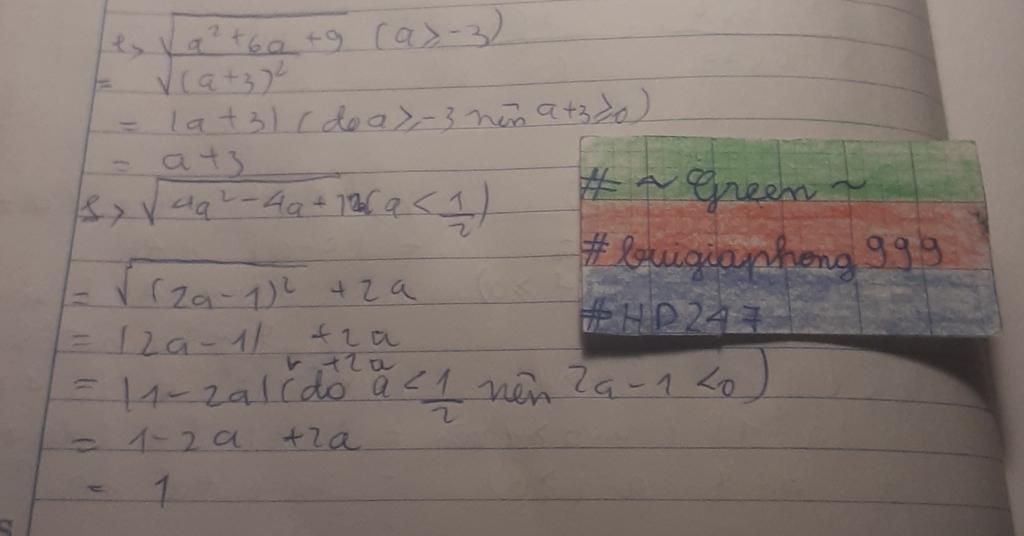 e, √(a² + 6a + 9) (a ≥ -3)
= √(a+3)²
= |a + 3| (do a ≥ -3 nên a+3 ≥ 0)
= a+3
√(4a² - 4a + 1) (a < 1/2)
= √(2a-1)² + 2a
= |2a-1| + 2a
+2a
= |1-2a| (do a < 1/2 nên 2a-1 < 0)
= 1-2a +2a
= 1
# ~ Green ~
# buigiaphong 999
# HD247